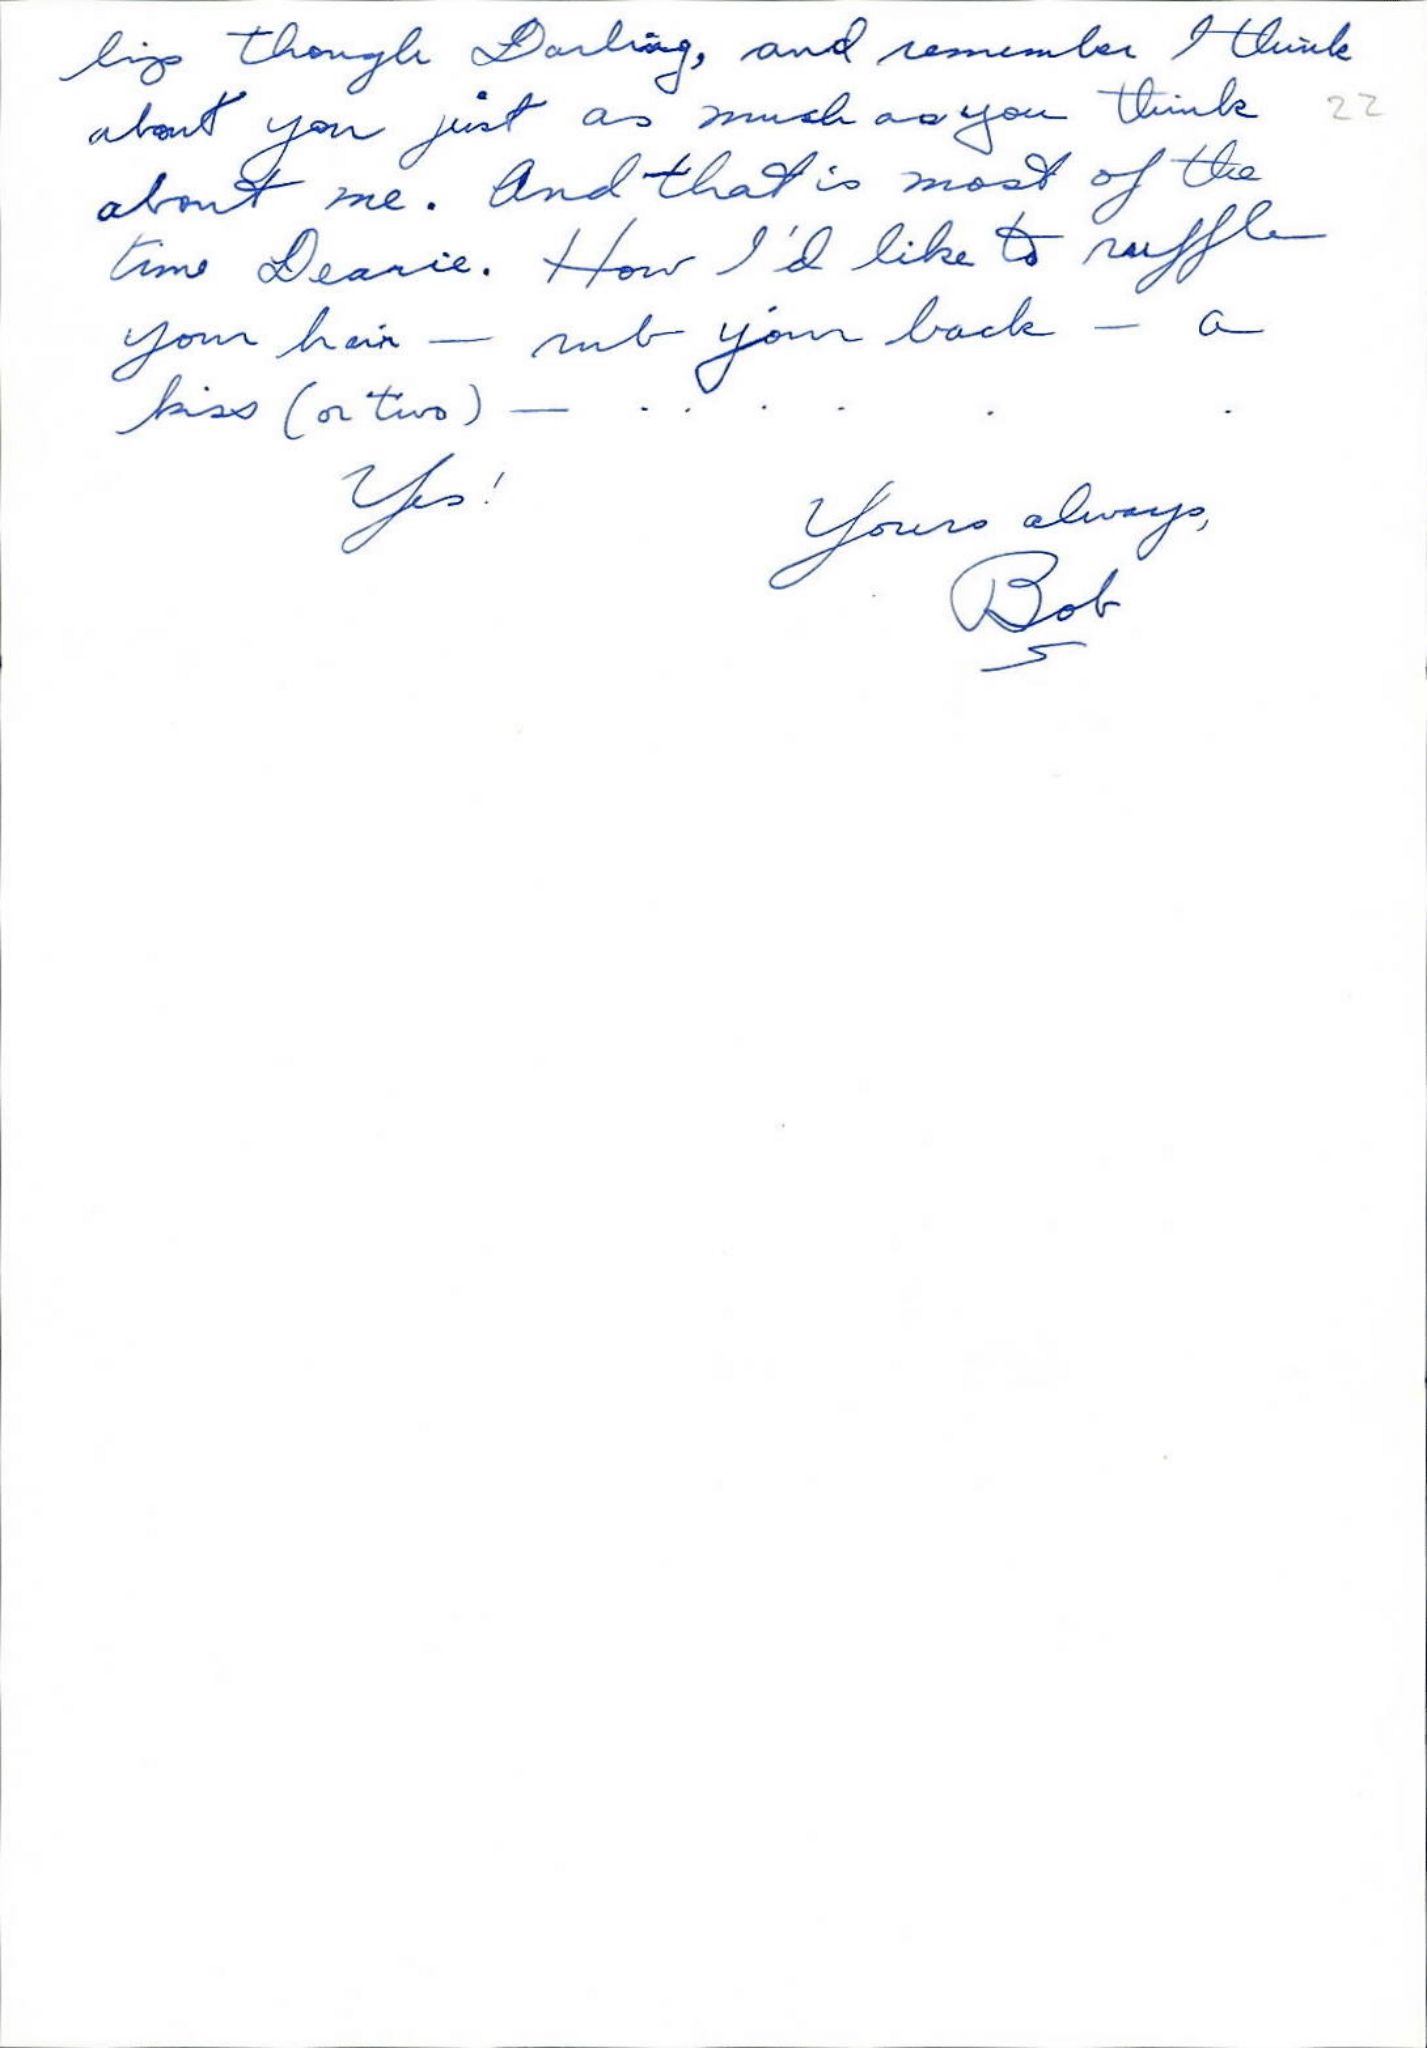 lip though Darling, and remember I think
about you just as much as you think 22
about me. And that is most of the
time Dearie. How I'd like to ruffle
your hair — rub your back — a
kiss (or two) — . . . . . .
Yes!
Yours always,
Bob